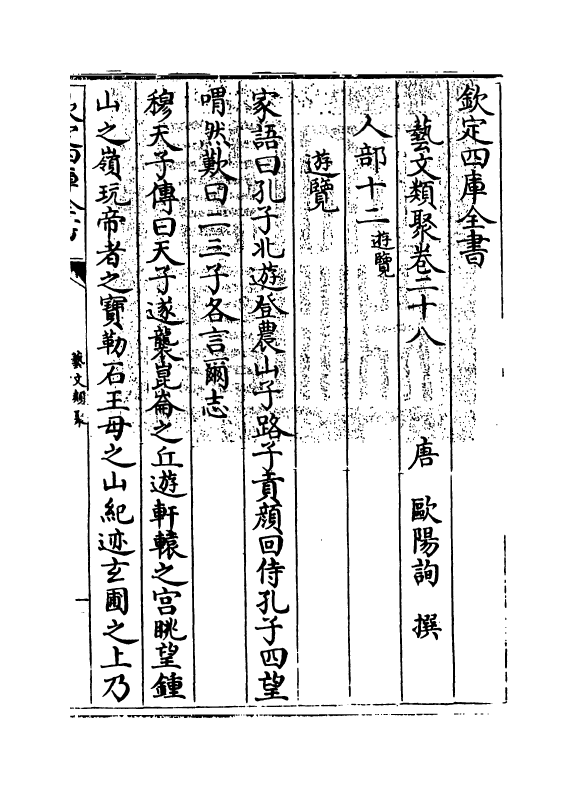 欽定四庫全書
藝文類聚卷二十八 唐 歐陽詢 撰
人部十二 遊覽
遊覽
家語曰孔子北遊登農山子路子貢顏回侍孔子四望
喟然歎曰二三子各言爾志
穆天子傳曰天子遂襲崑崙之丘遊軒轅之宮眺望鍾
山之嶺玩帝者之寶勒石王母之山紀迹玄圃之上乃
藝文類聚
一